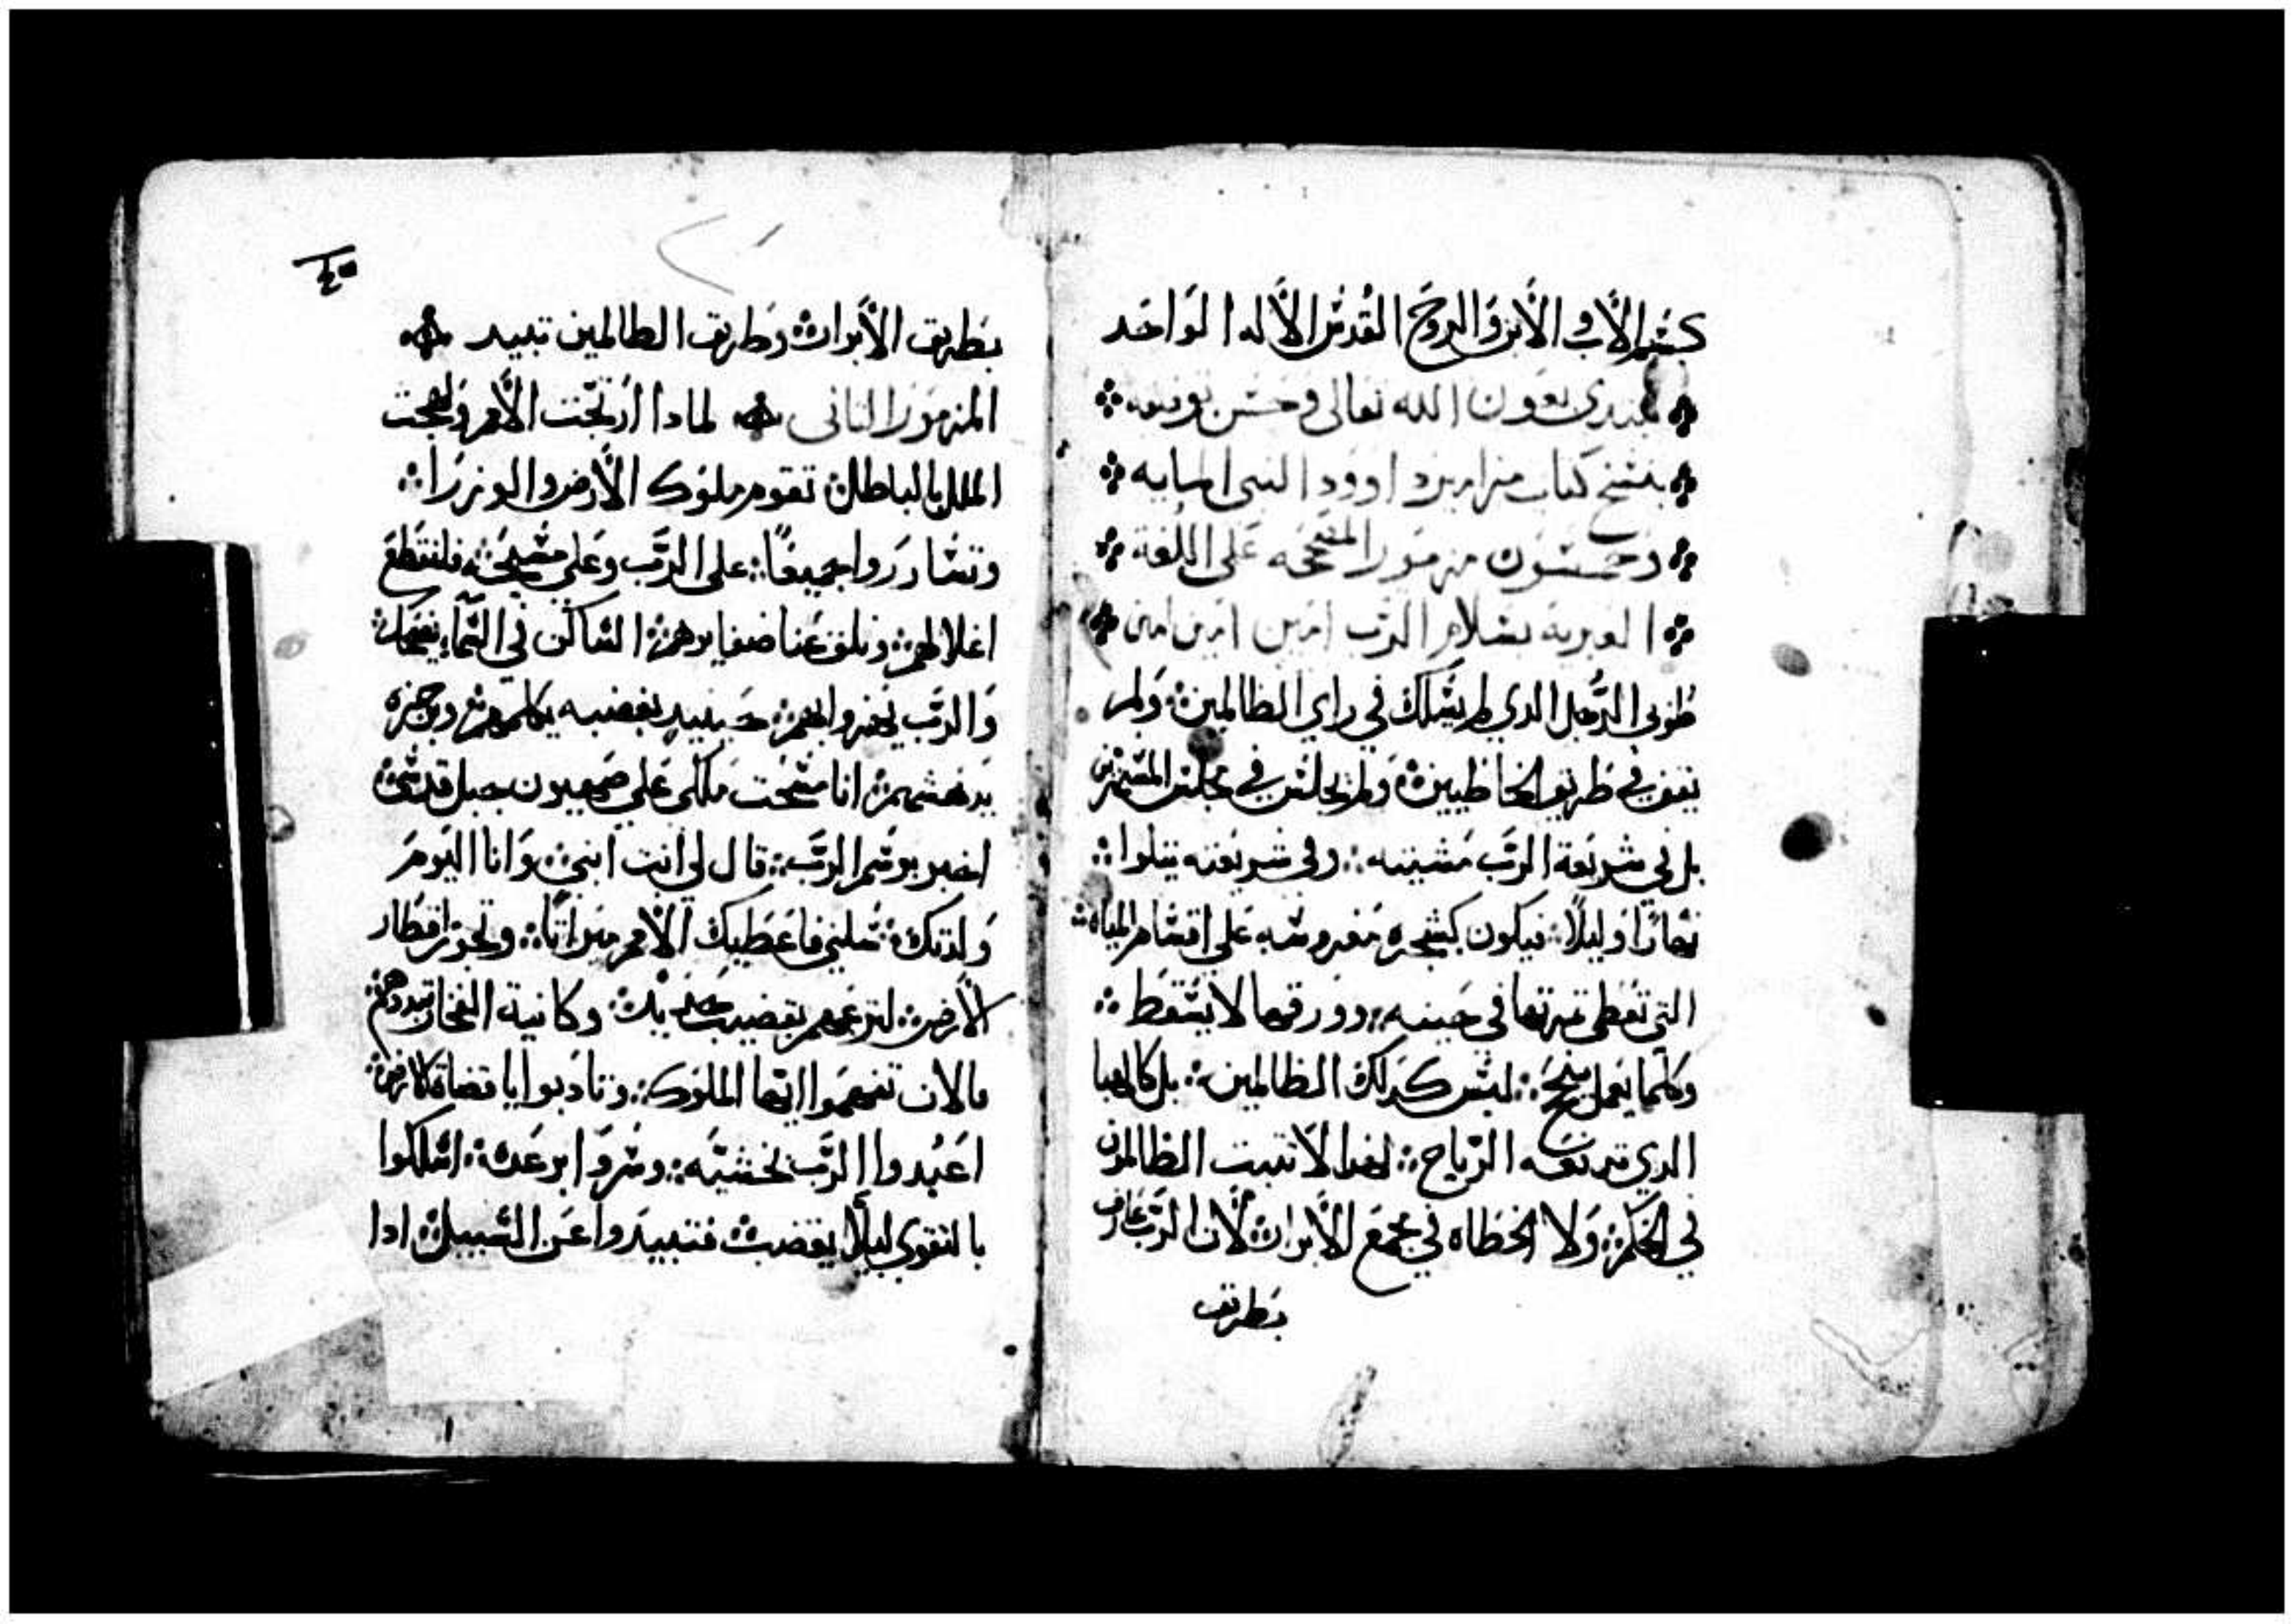 بسم الاب والابن والروح القدس الاله الواحد
نبتدي بعون الله تعالى وحسن توفيقه
بنسخ كتاب مزامير داوود النبي المايه
وخمسون مزمورا المصححه على اللغة
العبرية بسلام الرب امين امين امين
طوبى الرجل الذي لم يسلك في راي الظالمين ولم
يقف في طريق الخاطيين ولم يجلس في مجلس المستهزين
بل في شريعة الرب مشيته وفي شريعته يتلوا
نهارا وليلا فيكون كشجره مغروسه على اقسام المياه
التي تعطي تمرتها في حينه وورقها لا يسقط
وكلما يعمل ينجح ليس كدلك الظالمين بل كالهبا
الدي تدفعه الرياح لهدا لا تتبت الظالمون
في الحكم ولا الخطاه في مجمع الابرار لان الرب عارف
بطريق
٤٥
بطريق الابرار وطريق الظالمين تبيد
المزمور الثاني لمادا ارتجت الامم ولهجت
الملل بالباطل تقوم ملوك الارض والوزرا
وتشاوروا جميعا على الرب وعلى مسيحه فلنقطع
اغلالهم ونلق عنا ضفايرهم الساكن في السما يضحك
والرب يهزو بهم حينيد بغضبه يكلمهم وبرجزه
يدهشهم انا مسحت ملكي على صهيون جبل قدسي
اخبر برسم الرب قال لي انت ابني وانا اليوم
ولدتك سلني فاعطيك الامم ميراتا وتحوز اقطار
الارض لترعاهم بقضيب حديد وكانية الفخار تبددهم
فالان تفهموا ايها الملوك وتادبوا يا قضاة الارض
اعبدوا الرب بخشيه وسروا برعده اسلكوا
بالتقوى ليلا يغضب فتبيدوا عن السبيل ادا